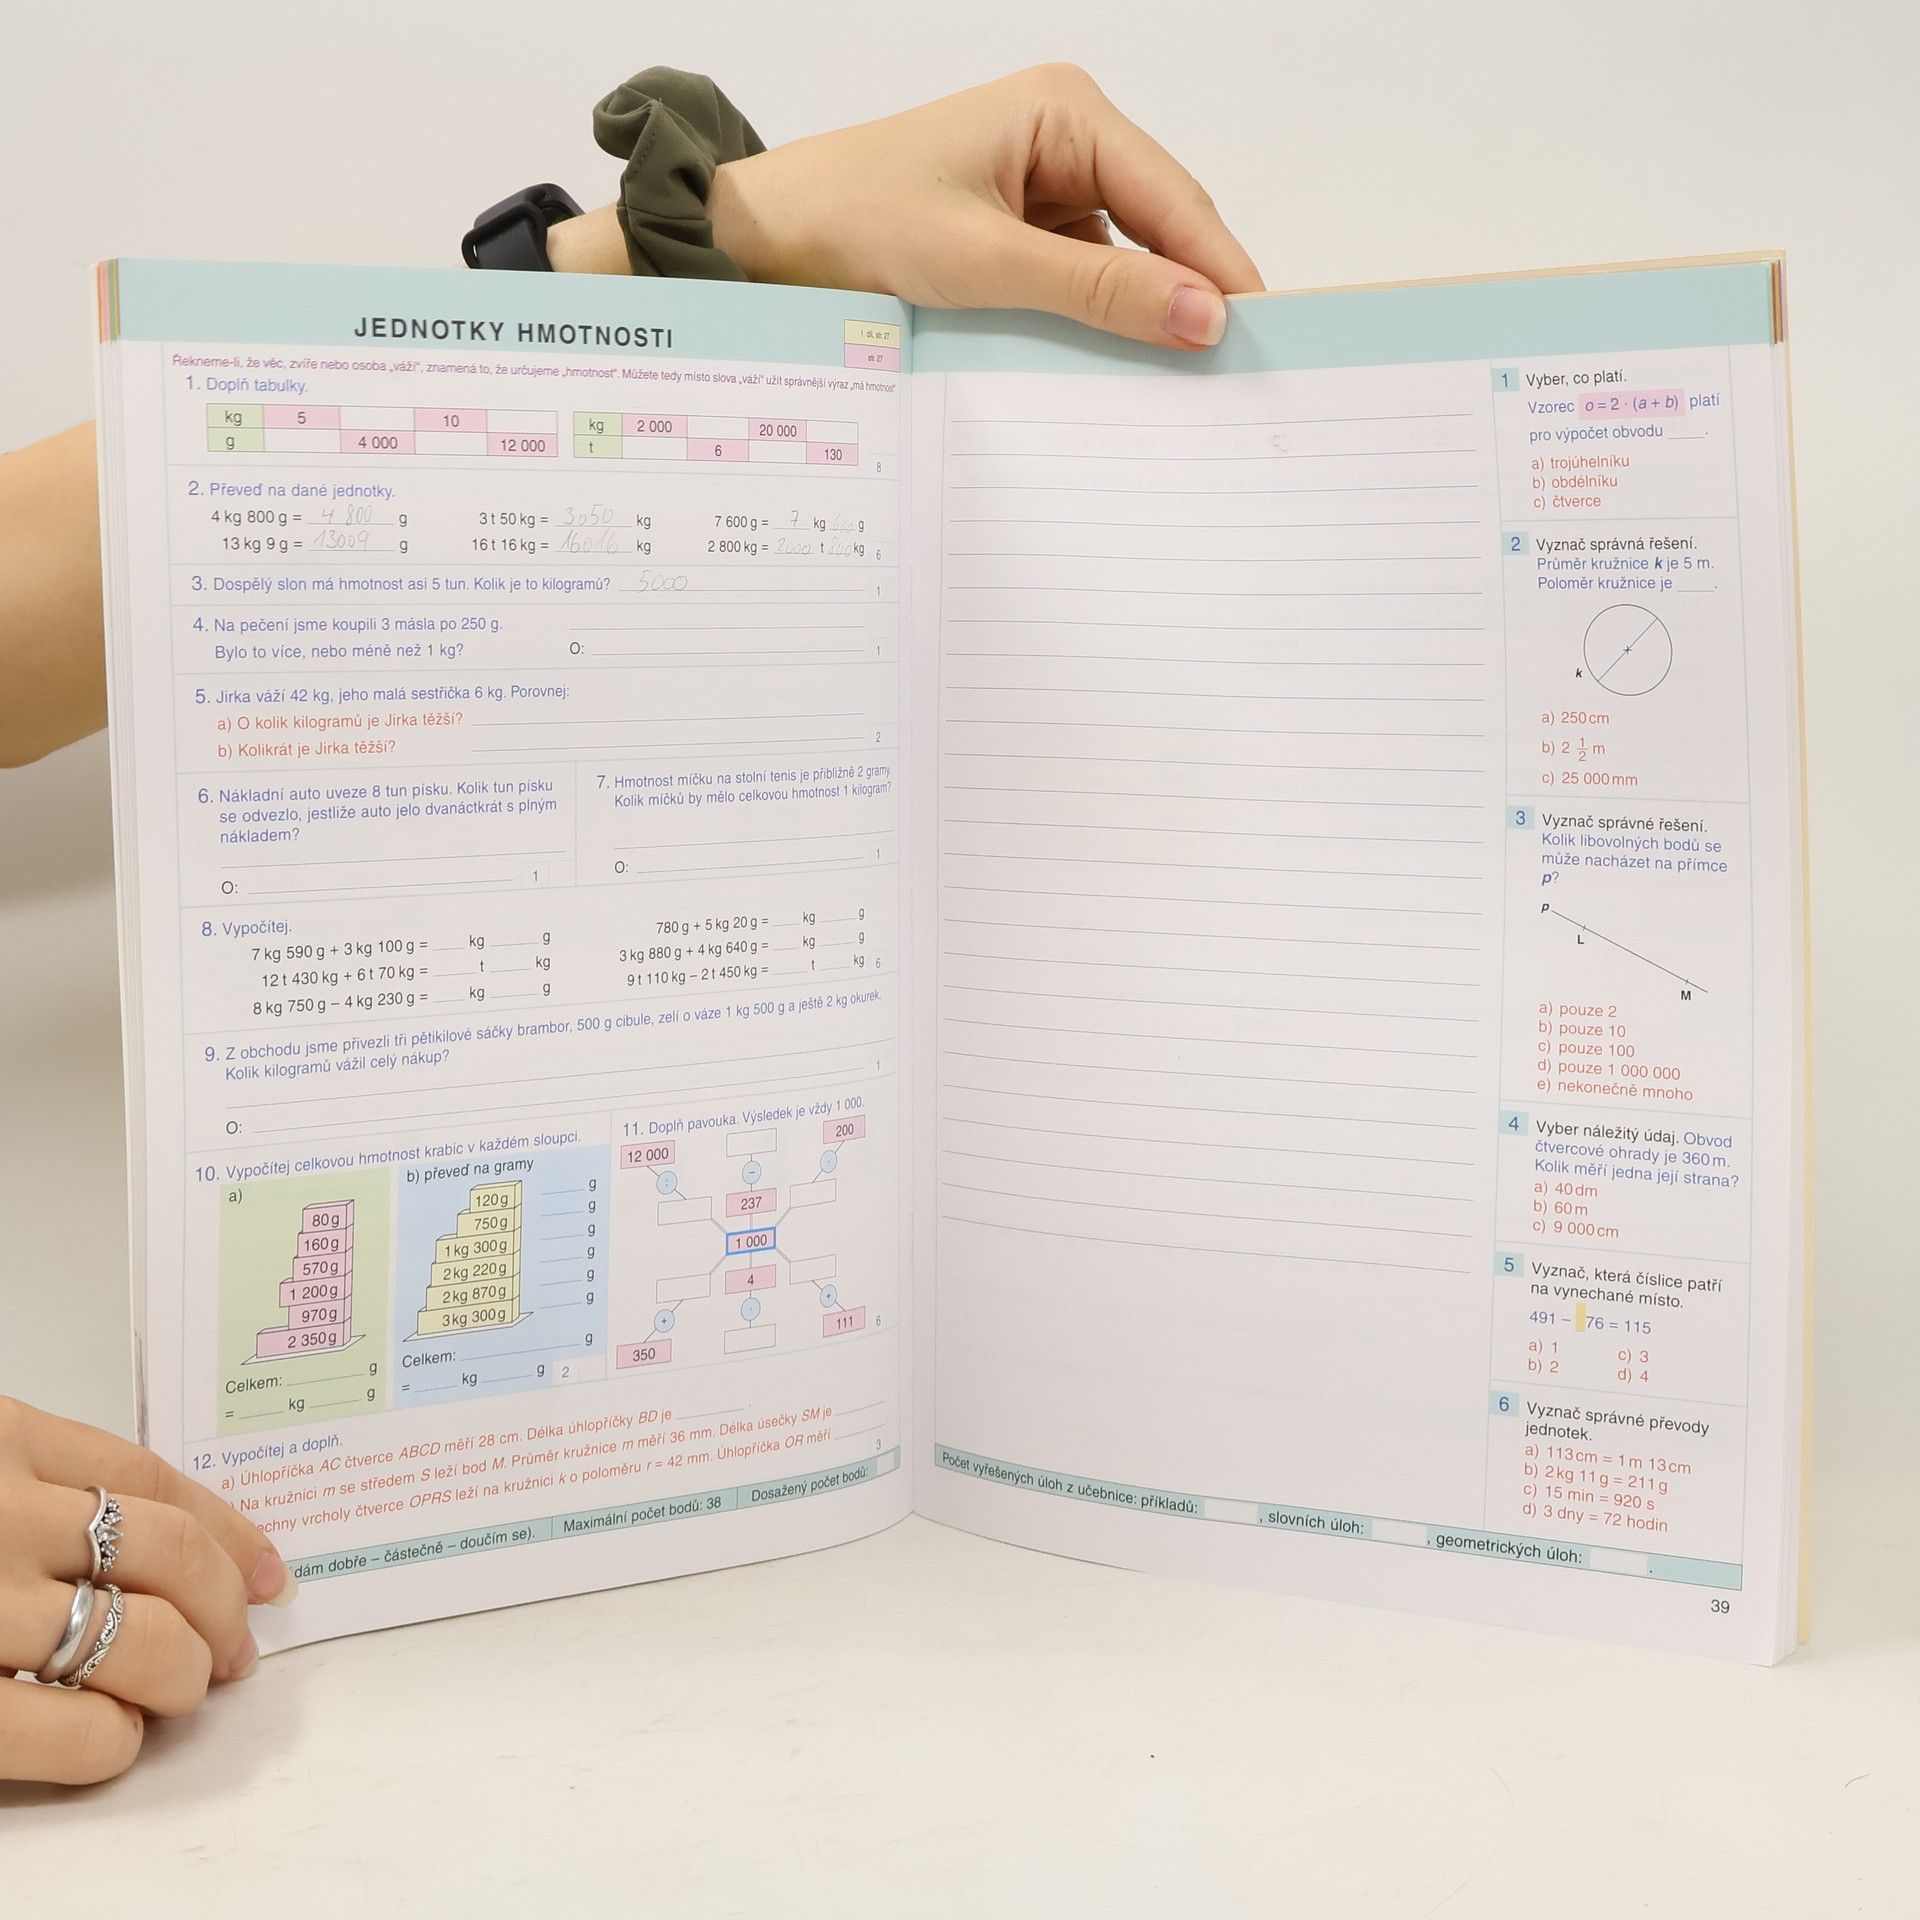 JEDNOTKY HMOTNOSTI
1. díl, str. 27
str. 27
Řekneme-li, že věc, zvíře nebo osoba „váží“, znamená to, že určujeme „hmotnost“. Můžete tedy místo slova „váží“ užít správnější výraz „má hmotnost“
1. Doplň tabulky.
kg 5 10
g 4 000 12 000
kg 2 000 20 000
t 6 130
8
2. Převeď na dané jednotky.
4 kg 800 g = 4 800 g 3 t 50 kg = 3050 kg 7 600 g = 7 kg 600 g
13 kg 9 g = 13009 g 16 t 16 kg = 16016 kg 2 800 kg = 2000 t 800 kg 6
3. Dospělý slon má hmotnost asi 5 tun. Kolik je to kilogramů? 5000
1
4. Na pečení jsme koupili 3 másla po 250 g.
Bylo to více, nebo méně než 1 kg? O: 1
5. Jirka váží 42 kg, jeho malá sestřička 6 kg. Porovnej:
a) O kolik kilogramů je Jirka těžší?
b) Kolikrát je Jirka těžší? 2
6. Nákladní auto uveze 8 tun písku. Kolik tun písku
se odvezlo, jestliže auto jelo dvanáctkrát s plným
nákladem?
O: 1
7. Hmotnost míčku na stolní tenis je přibližně 2 gramy.
Kolik míčků by mělo celkovou hmotnost 1 kilogram?
O: 1
8. Vypočítej.
7 kg 590 g + 3 kg 100 g = ____ kg ____ g
12 t 430 kg + 6 t 70 kg = ____ t ____ kg
8 kg 750 g – 4 kg 230 g = ____ kg ____ g
780 g + 5 kg 20 g = ____ kg ____ g
3 kg 880 g + 4 kg 640 g = ____ kg ____ g
9 t 110 kg – 2 t 450 kg = ____ t ____ kg 6
9. Z obchodu jsme přivezli tři pětikilové sáčky brambor, 500 g cibule, zelí o váze 1 kg 500 g a ještě 2 kg okurek.
Kolik kilogramů vážil celý nákup?
1
O:
10. Vypočítej celkovou hmotnost krabic v každém sloupci.
a)
80 g
160 g
570 g
1 200 g
970 g
2 350 g
Celkem: ____ g
= ____ kg ____ g
b) převeď na gramy
120 g ____ g
750 g ____ g
1 kg 300 g ____ g
2 kg 220 g ____ g
2 kg 870 g ____ g
3 kg 300 g ____ g
Celkem: ____ g
= ____ kg ____ g 2
11. Doplň pavouka. Výsledek je vždy 1 000.
12 000 200
: – ·
237
1 000
4
+ · +
350 111 6
12. Vypočítej a doplň.
a) Úhlopříčka AC čtverce ABCD měří 28 cm. Délka úhlopříčky BD je ____.
) Na kružnici m se středem S leží bod M. Průměr kružnice m měří 36 mm. Délka úsečky SM je ____.
echny vrcholy čtverce OPRS leží na kružnici k o poloměru r = 42 mm. Úhlopříčka OR měří ____.
3
dám dobře – částečně – doučím se). Maximální počet bodů: 38 Dosažený počet bodů:
1 Vyber, co platí.
Vzorec o = 2 · (a + b) platí
pro výpočet obvodu ____.
a) trojúhelníku
b) obdélníku
c) čtverce
2 Vyznač správná řešení.
Průměr kružnice k je 5 m.
Poloměr kružnice je ____.
k
a) 250 cm
b) 2 1/2 m
c) 25 000 mm
3 Vyznač správné řešení.
Kolik libovolných bodů se
může nacházet na přímce
p?
p
L
M
a) pouze 2
b) pouze 10
c) pouze 100
d) pouze 1 000 000
e) nekonečně mnoho
4 Vyber náležitý údaj. Obvod
čtvercové ohrady je 360 m.
Kolik měří jedna její strana?
a) 40 dm
b) 60 m
c) 9 000 cm
5 Vyznač, která číslice patří
na vynechané místo.
491 – 76 = 115
a) 1 c) 3
b) 2 d) 4
6 Vyznač správné převody
jednotek.
a) 113 cm = 1 m 13 cm
b) 2 kg 11 g = 211 g
c) 15 min = 920 s
d) 3 dny = 72 hodin
Počet vyřešených úloh z učebnice: příkladů: , slovních úloh: , geometrických úloh: .
39